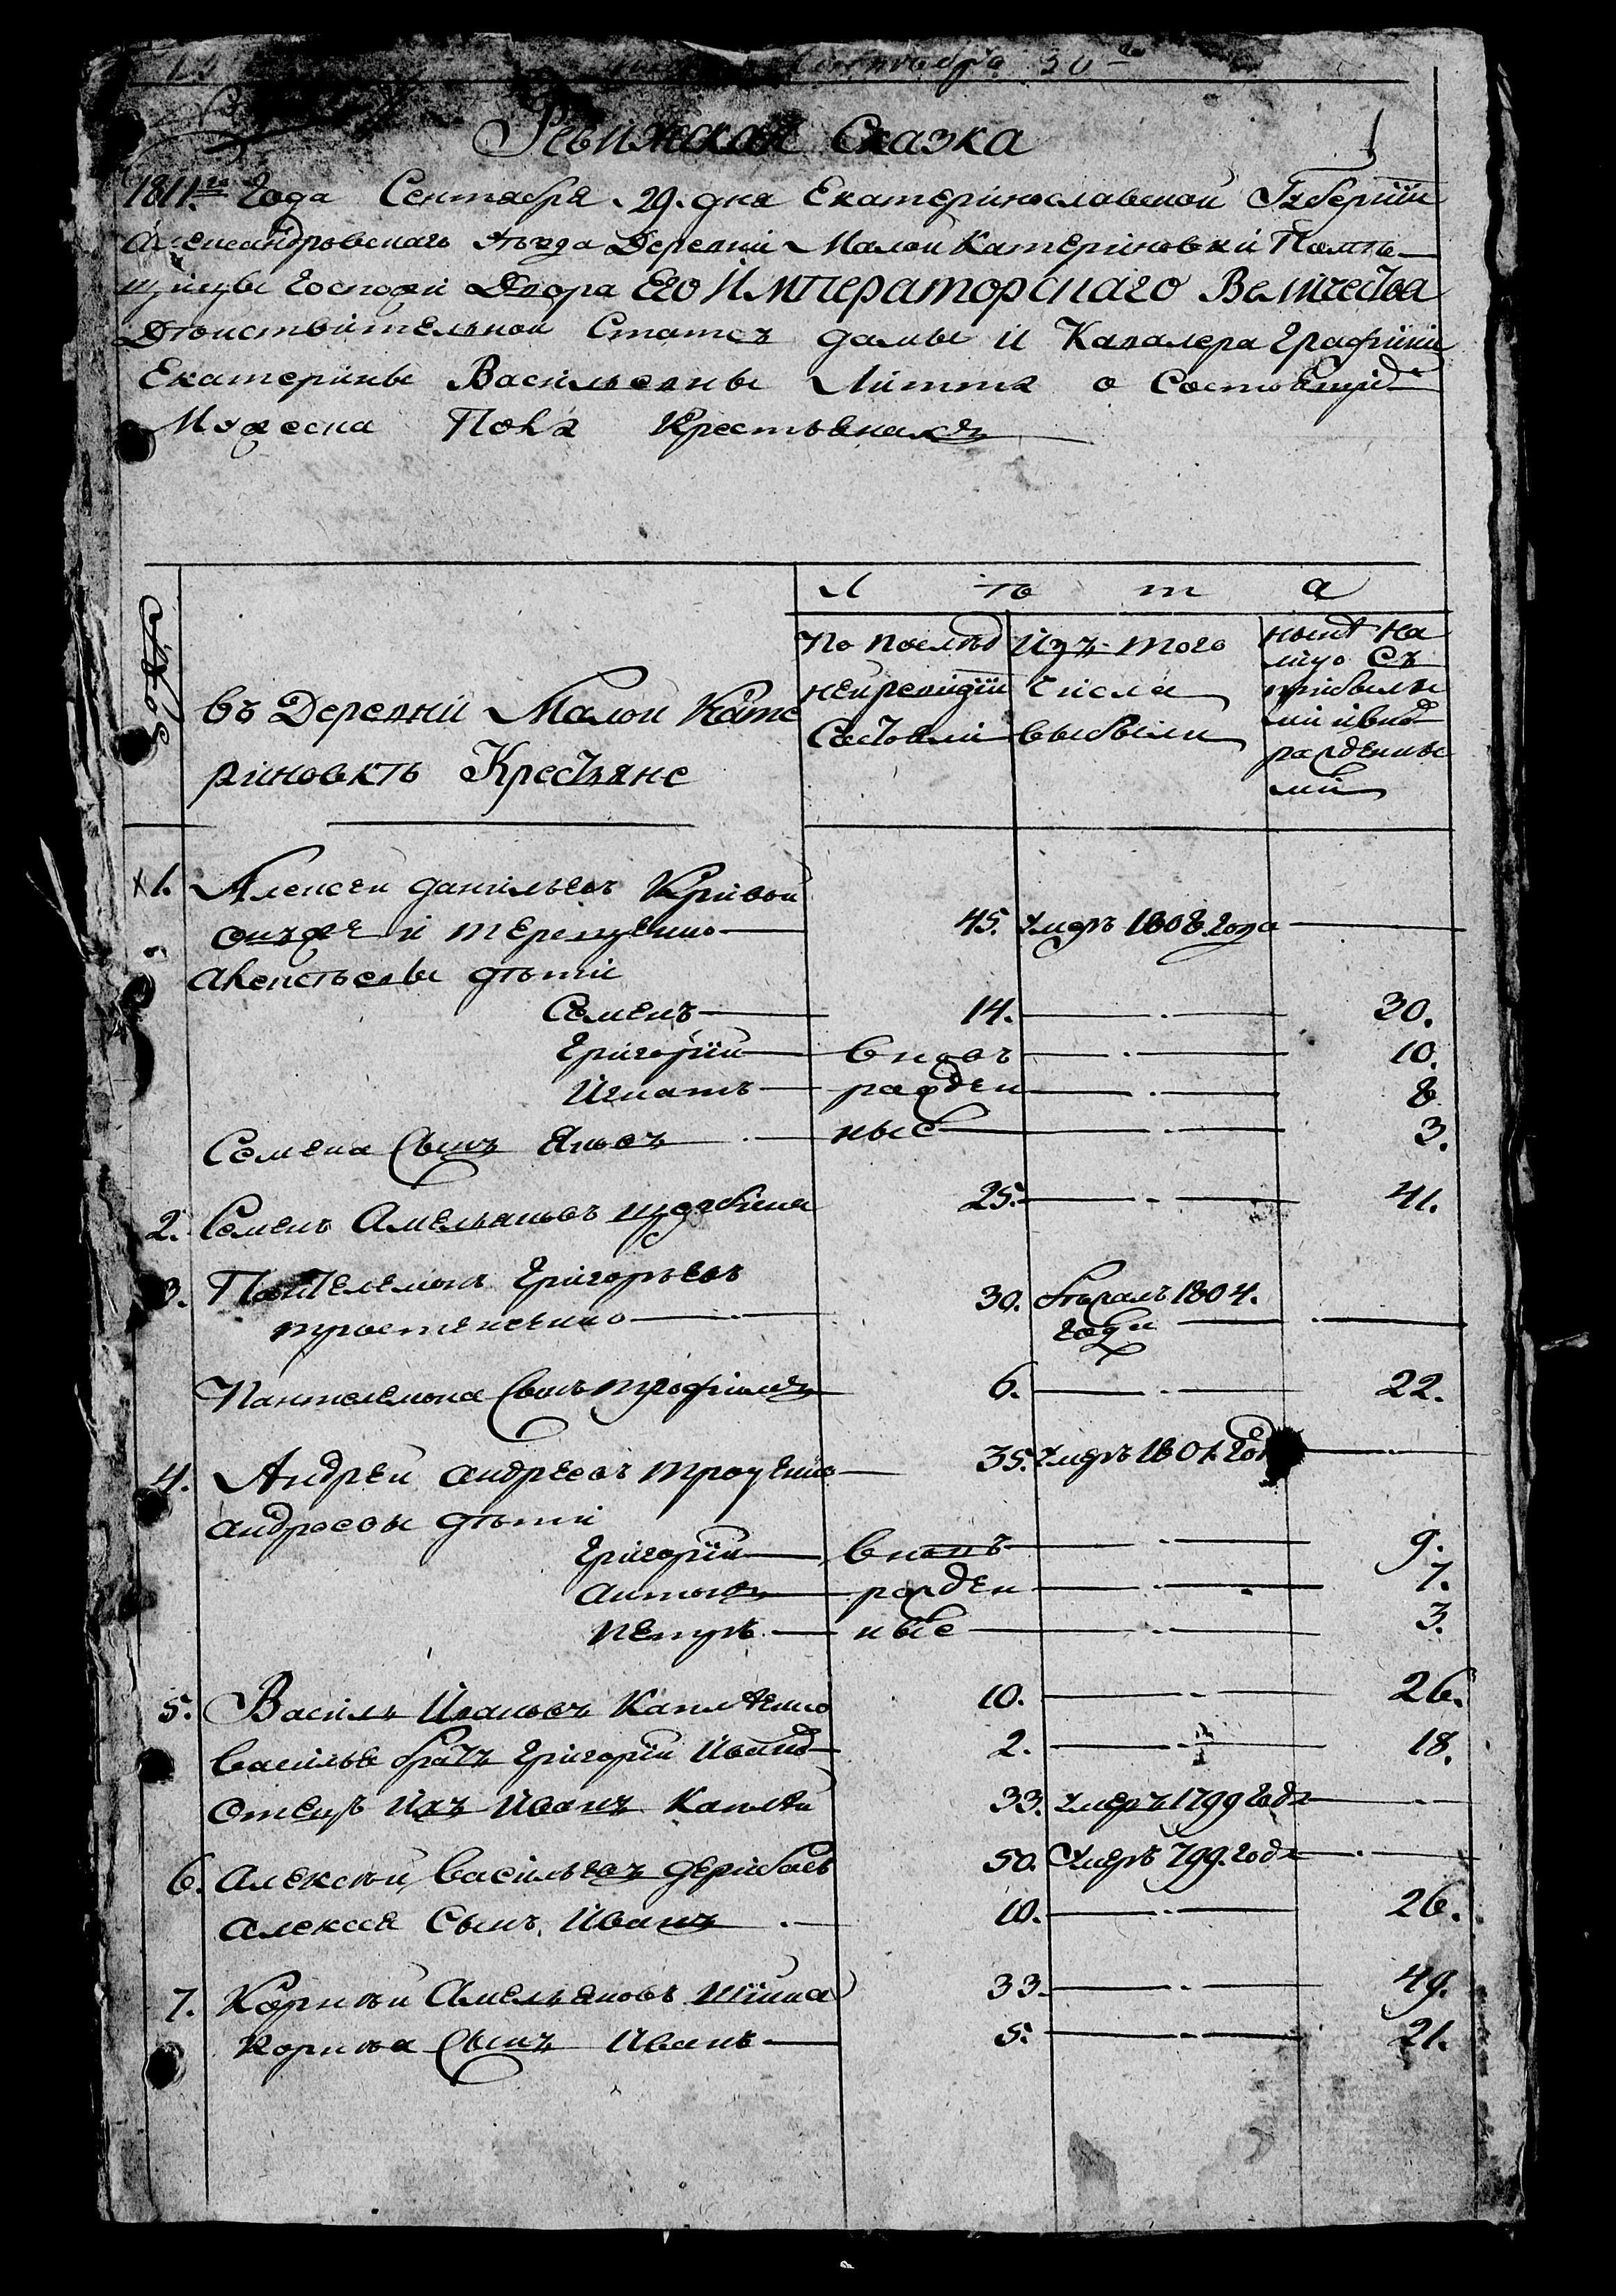 Сентября 30
Ревижская Сказка
1811го Года Сентября 29. дня Екатеринославской Губернии
Александровскаго уезда Деревни Малой Катериновки Помѣ-
щицы Госпожи Двора Его Императорскаго Величества
Дѣйствительной Статсъ дамы и Кавалера Графини
Екатерины Васильевны Литта о Состоящихъ
Мужеска Пола Крестьянахъ
Л ѣ т а
въ Деревни Малой Кате
риновкѣ Крестьяне
По послѣд
ней ревизии
Состояли
Изъ того
Числа
выбыли
нынѣ на
лицо Съ
прибылы
ми и внов
рожденны
ми
1. Алексей данильевъ Кривой
онъ же и терещенко 45. умеръ 1808. Года
алексѣевы дѣти
Семенъ 14. 30.
Григорий вновъ 10.
Игнатъ рожден 8.
Семена Сынъ Яковъ ные 3.
2. Семенъ Амельяновъ 25. 41.
3. Пантелемонъ Григорьевъ 30. бѣжалъ 1804.
года
Пантелемона Сынъ трофимъ 6. 22.
4. Андрей андреевъ троценко 35. умеръ 1801. Года
андреевы дѣти
Григорий вновъ 9.
антонъ рожден 7.
петръ ные 3.
5. Василь Ивановъ Каплѣенко 10. 26.
василья братъ Григорий Иванов 2. 18.
отецъ Ихъ Иванъ Каплѣй 33. умеръ 1799 года
6. алексѣй васильевъ дерибасъ 50. умеръ 799. года
алексея Сынъ Иванъ 10. 26.
7. Корнѣй Амельяновъ шиша 33. 49.
Корнѣя Сынъ Иванъ 5. 21.